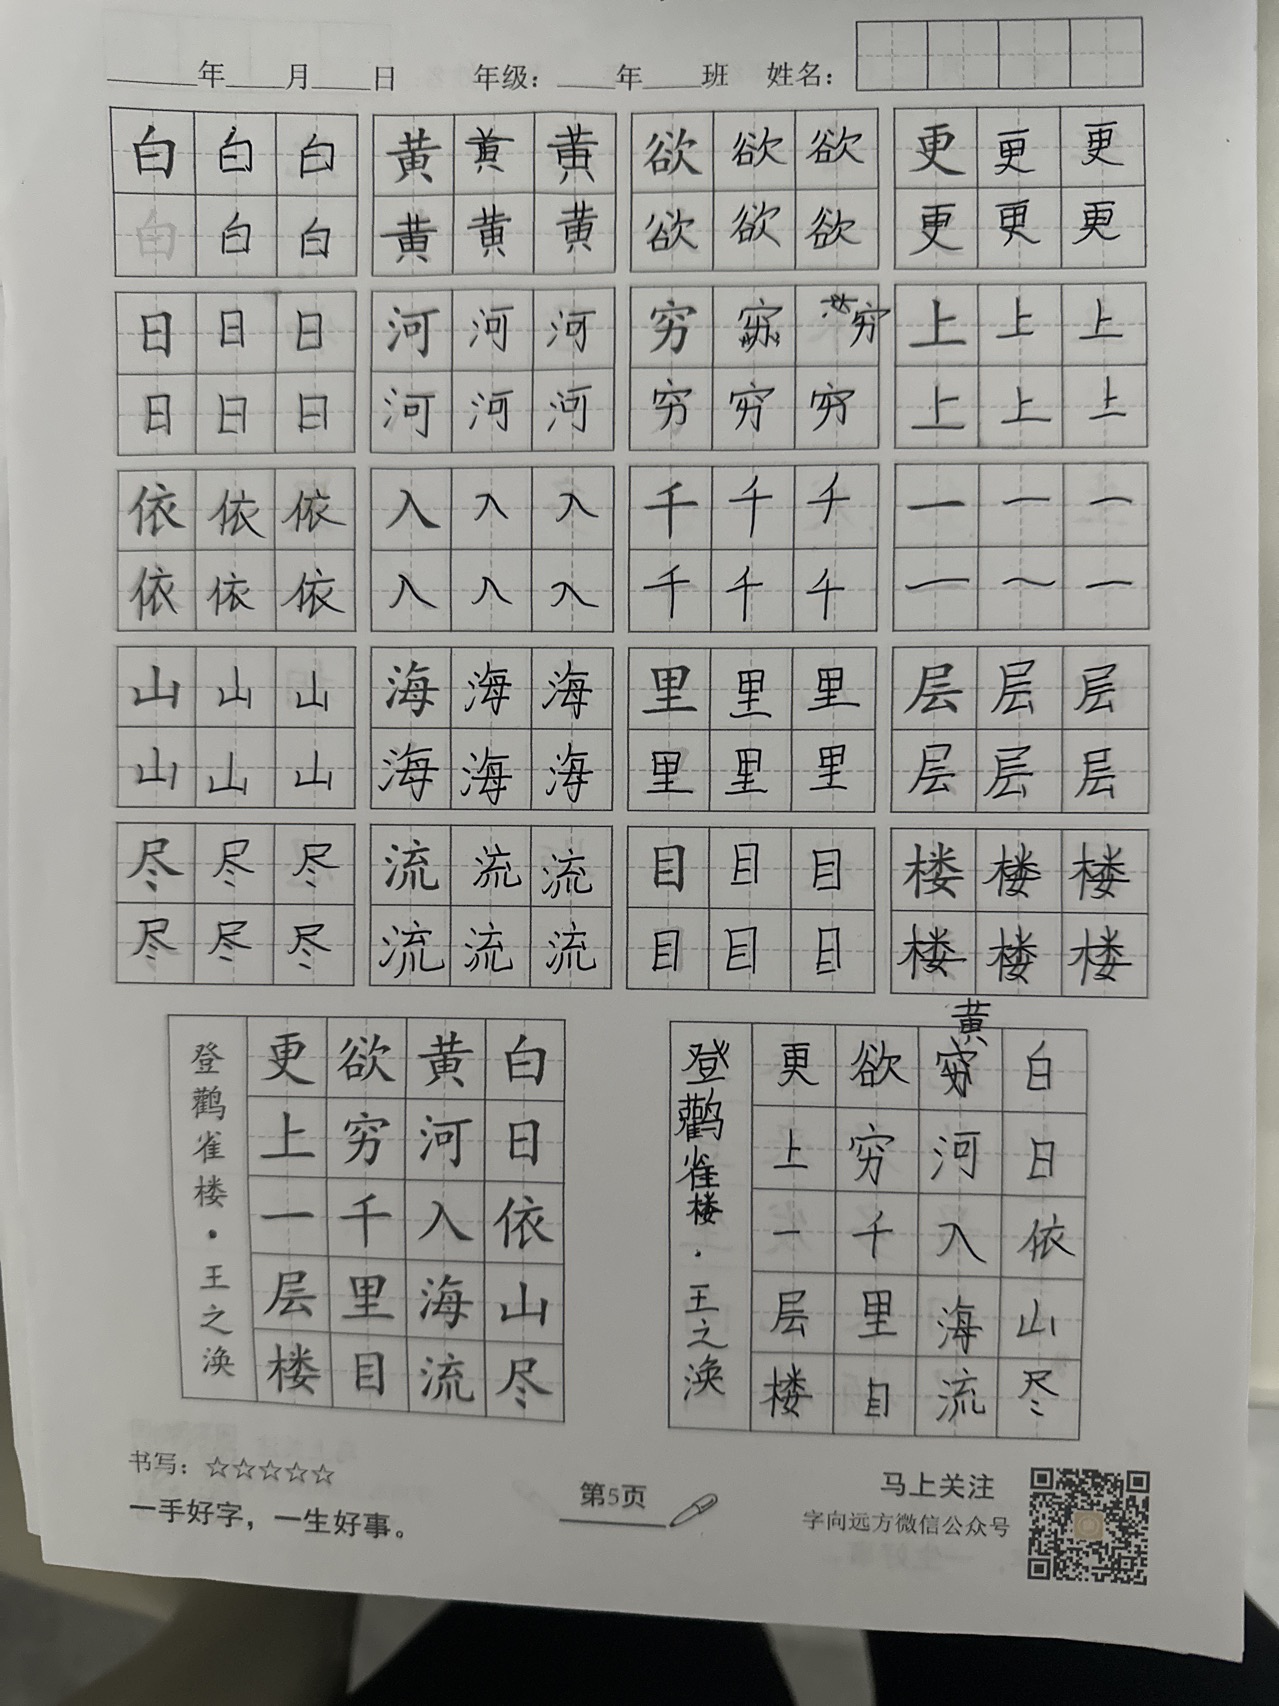 年 月 日 年级： 年 班 姓名：
白 白 白 黄 黄 黄 欲 欲 欲 更 更 更
白 白 白 黄 黄 黄 欲 欲 欲 更 更 更
日 日 日 河 河 河 穷 穷 上 上 上
日 日 日 河 河 河 穷 穷 穷 上 上 上
依 依 依 入 入 入 千 千 千 一 一 一
依 依 依 入 入 入 千 千 千 一 一 一
山 山 山 海 海 海 里 里 里 层 层 层
山 山 山 海 海 海 里 里 里 层 层 层
尽 尽 尽 流 流 流 目 目 目 楼 楼 楼
尽 尽 尽 流 流 流 目 目 目 楼 楼 楼
白日依山尽
黄河入海流
欲穷千里目
更上一层楼
登鹳雀楼·王之涣
白日依山尽
黄河入海流
欲穷千里目
更上一层楼
登鹳雀楼·王之涣
书写：☆☆☆☆☆
一手好字，一生好事。
第5页
马上关注
字向远方微信公众号